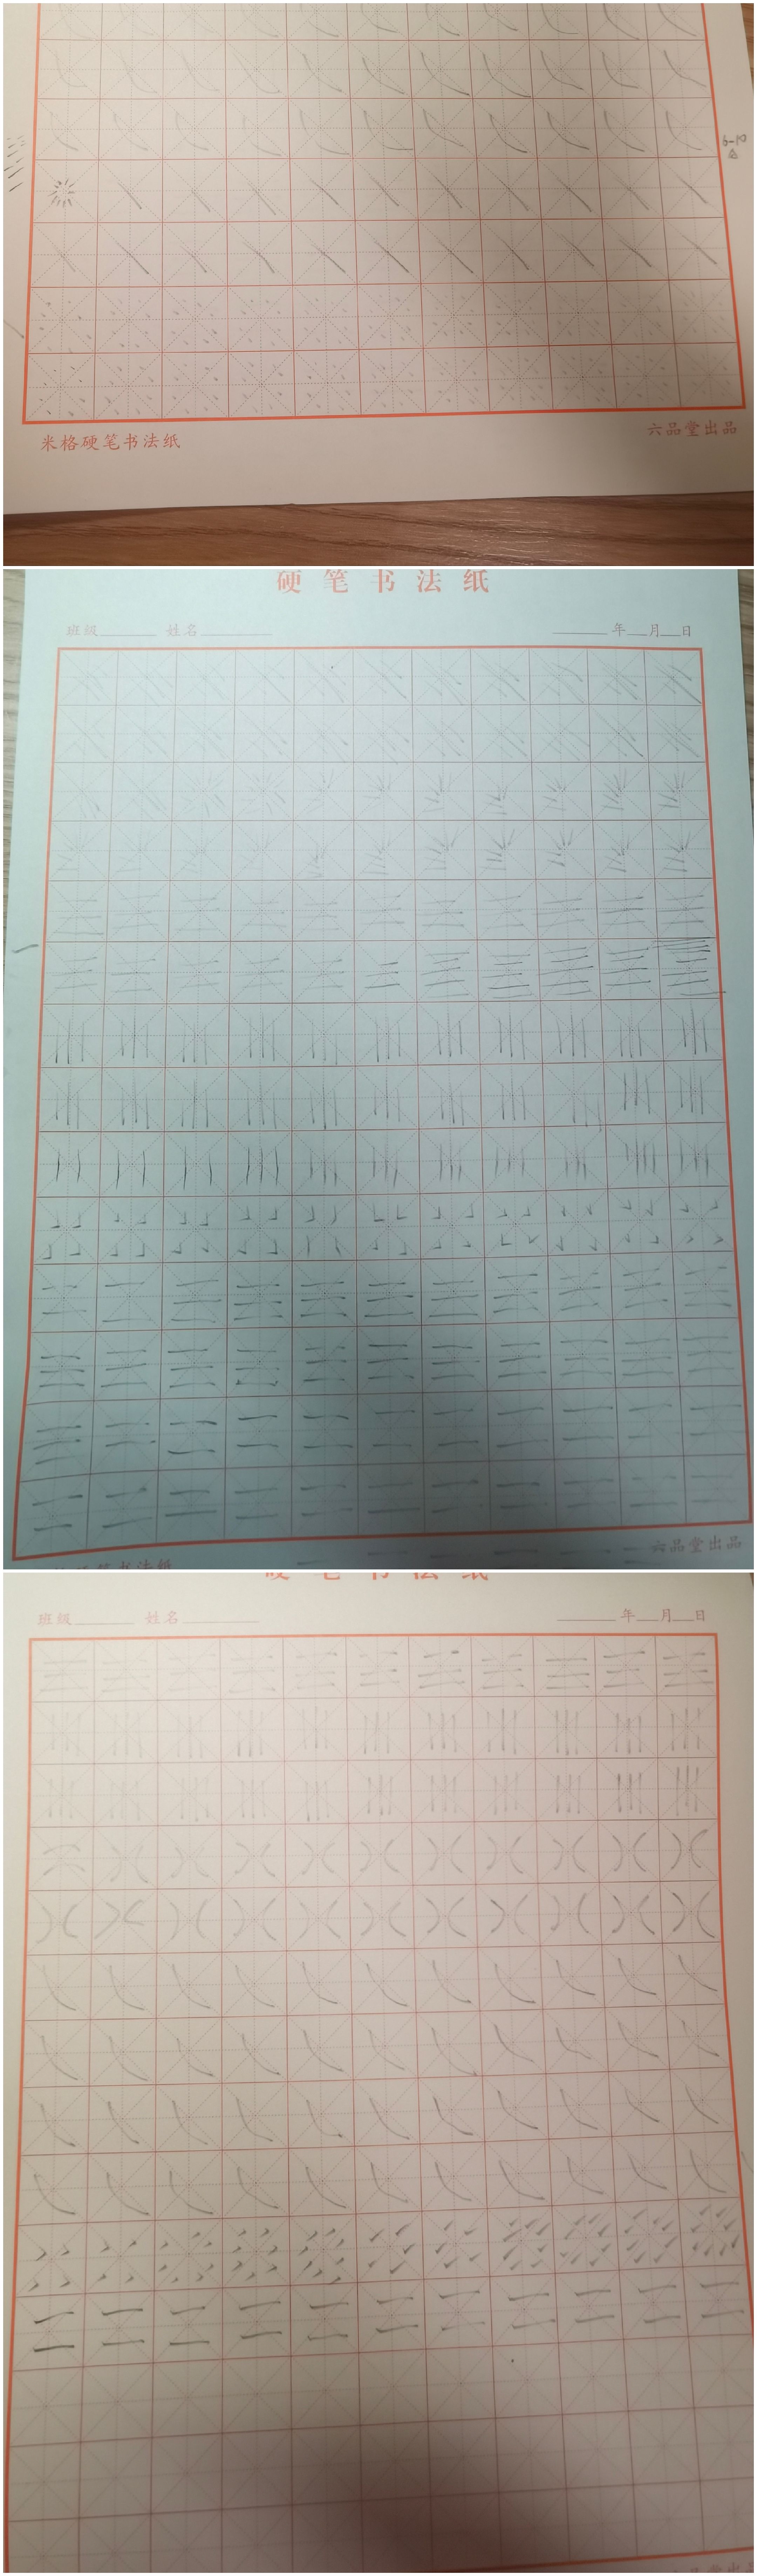 6-10
米格硬笔书法纸 六品堂出品
硬笔书法纸
班级 姓名 年 月 日
六品堂出品
班级 姓名 年 月 日